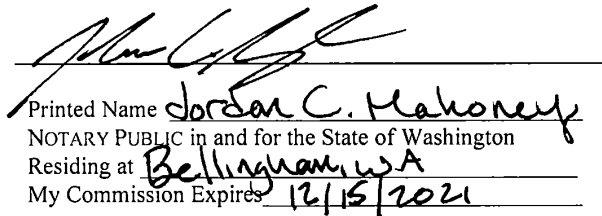 Printed Name Jordan C. Mahoney
NOTARY PUBLIC in and for the State of Washington
Residing at Bellingham, WA
My Commission Expires 12/15/2021